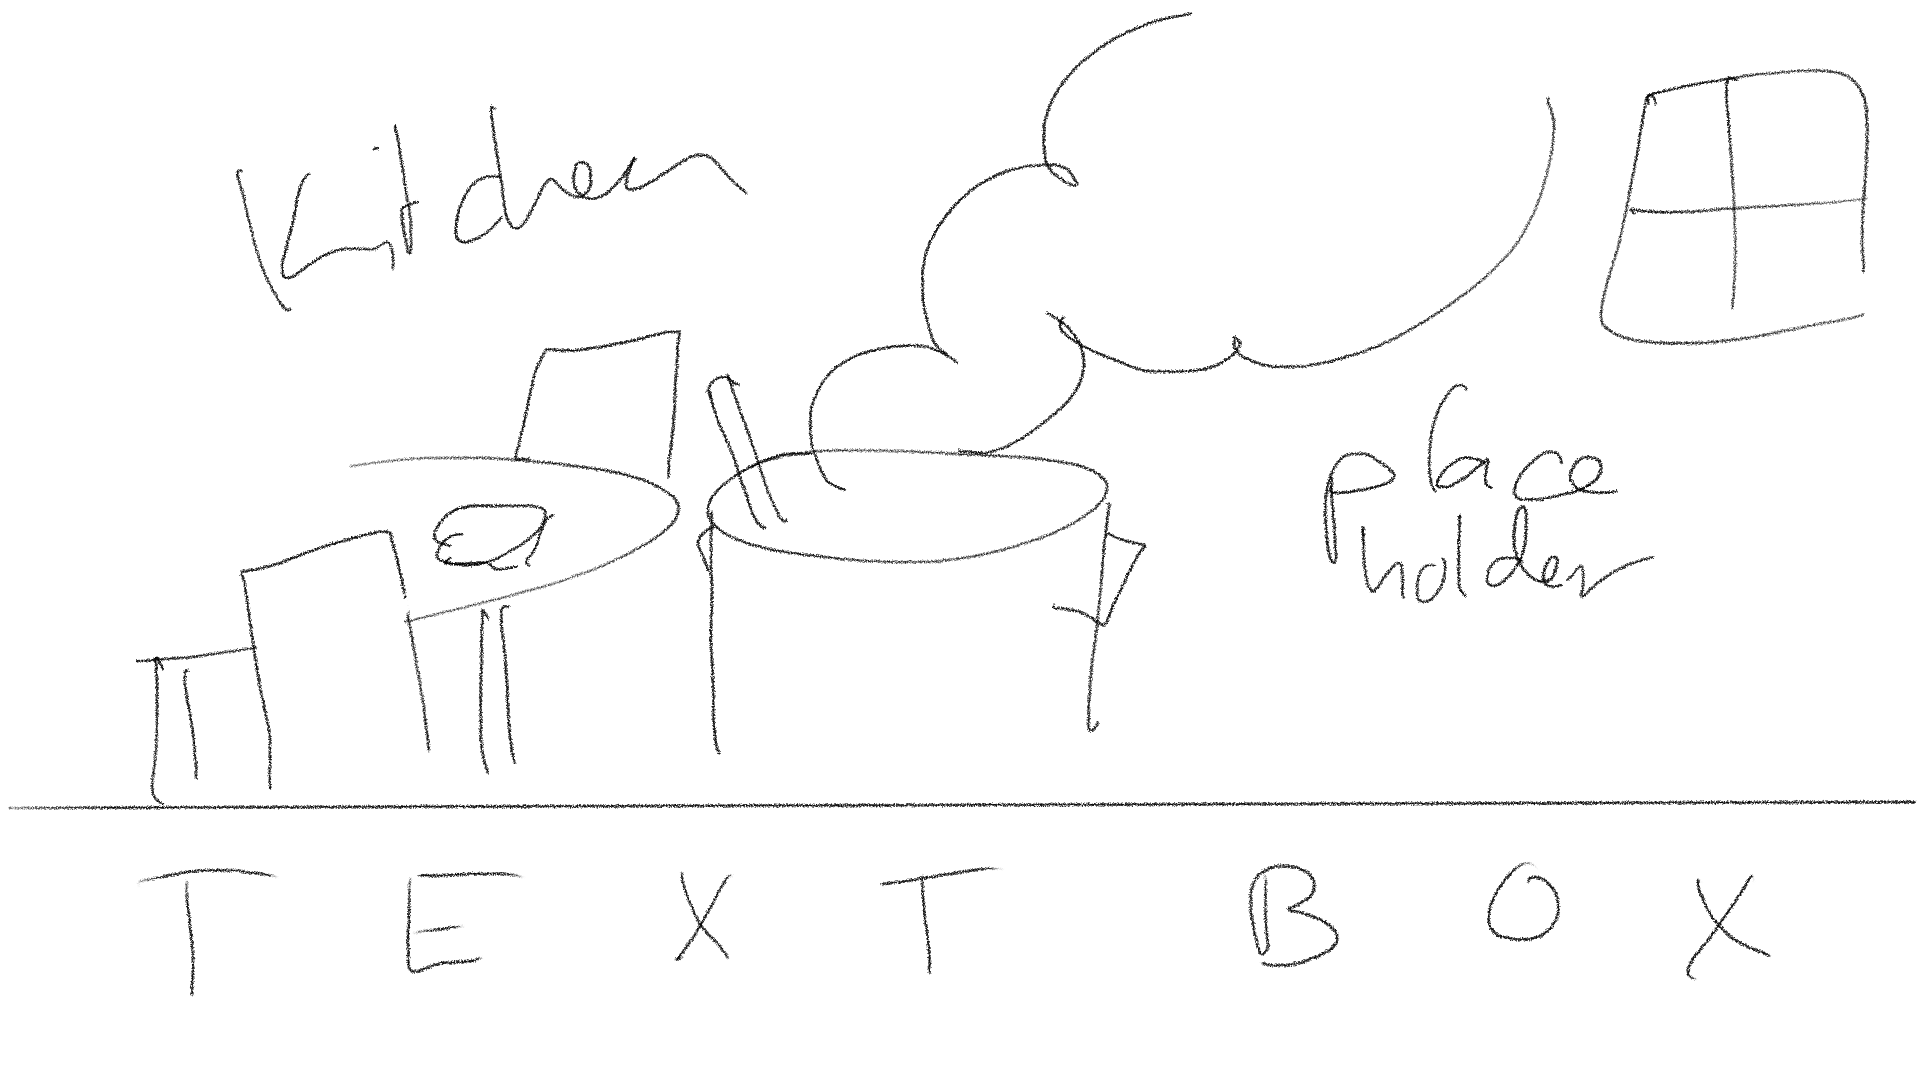 Kitchen
place
holder
TEXT BOX